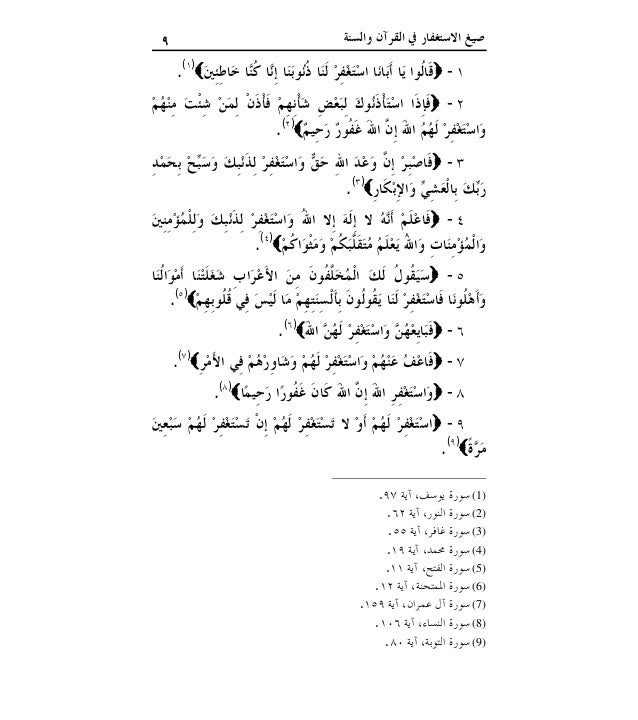 صيغ الاستغفار في القرآن والسنة ٩
١ - ﴿قَالُوا يَا أَبَانَا اسْتَغْفِرْ لَنَا ذُنُوبَنَا إِنَّا كُنَّا خَاطِئِينَ﴾(١).
٢ - ﴿فَإِذَا اسْتَأْذَنُوكَ لِبَعْضِ شَأْنِهِمْ فَأْذَنْ لِمَنْ شِئْتَ مِنْهُمْ
وَاسْتَغْفِرْ لَهُمُ اللهَ إِنَّ اللهَ غَفُورٌ رَحِيمٌ﴾(٢).
٣ - ﴿فَاصْبِرْ إِنَّ وَعْدَ اللهِ حَقٌّ وَاسْتَغْفِرْ لِذَنْبِكَ وَسَبِّحْ بِحَمْدِ
رَبِّكَ بِالْعَشِيِّ وَالإِبْكَارِ﴾(٣).
٤ - ﴿فَاعْلَمْ أَنَّهُ لا إِلَهَ إِلا اللهُ وَاسْتَغْفِرْ لِذَنْبِكَ وَلِلْمُؤْمِنِينَ
وَالْمُؤْمِنَاتِ وَاللهُ يَعْلَمُ مُتَقَلَّبَكُمْ وَمَثْوَاكُمْ﴾(٤).
٥ - ﴿سَيَقُولُ لَكَ الْمُخَلَّفُونَ مِنَ الأَعْرَابِ شَغَلَتْنَا أَمْوَالُنَا
وَأَهْلُونَا فَاسْتَغْفِرْ لَنَا يَقُولُونَ بِأَلْسِنَتِهِمْ مَا لَيْسَ فِي قُلُوبِهِمْ﴾(٥).
٦ - ﴿فَبَايِعْهُنَّ وَاسْتَغْفِرْ لَهُنَّ اللهَ﴾(٦).
٧ - ﴿فَاعْفُ عَنْهُمْ وَاسْتَغْفِرْ لَهُمْ وَشَاوِرْهُمْ فِي الأَمْرِ﴾(٧).
٨ - ﴿وَاسْتَغْفِرِ اللهَ إِنَّ اللهَ كَانَ غَفُورًا رَحِيمًا﴾(٨).
٩ - ﴿اسْتَغْفِرْ لَهُمْ أَوْ لا تَسْتَغْفِرْ لَهُمْ إِنْ تَسْتَغْفِرْ لَهُمْ سَبْعِينَ
مَرَّةً﴾(٩).
(1) سورة يوسف، آية ٩٧.
(2) سورة النور، آية ٦٢.
(3) سورة غافر، آية ٥٥.
(4) سورة محمد، آية ١٩.
(5) سورة الفتح، آية ١١.
(6) سورة الممتحنة، آية ١٢.
(7) سورة آل عمران، آية ١٥٩.
(8) سورة النساء، آية ١٠٦.
(9) سورة التوبة، آية ٨٠.